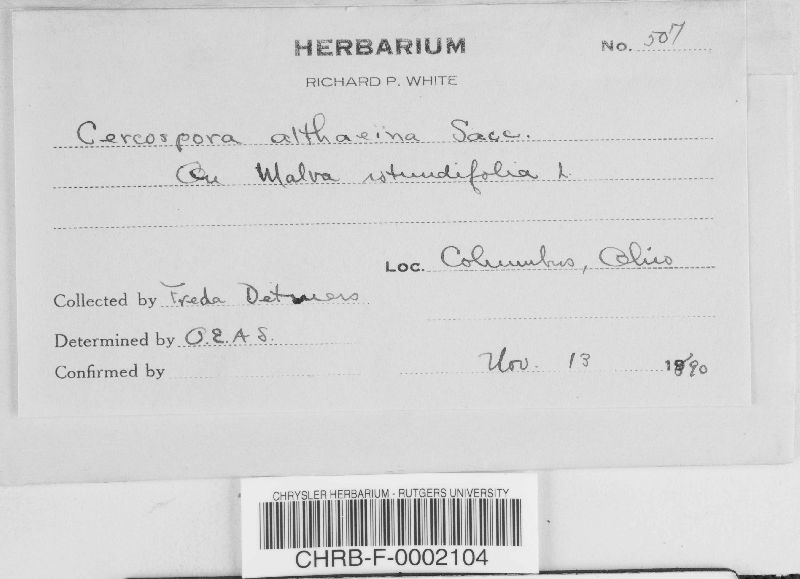 HERBARIUM
No. 507
RICHARD P. WHITE
Cercospora althaeina Sacc.
On Malva rotundifolia L
Loc. Columbus, Ohio
Collected by Freda Detmers
Determined by O.E.A S.
Confirmed by
Nov. 13 1890
CHRYSLER HERBARIUM - RUTGERS UNIVERSITY
CHRB-F-0002104